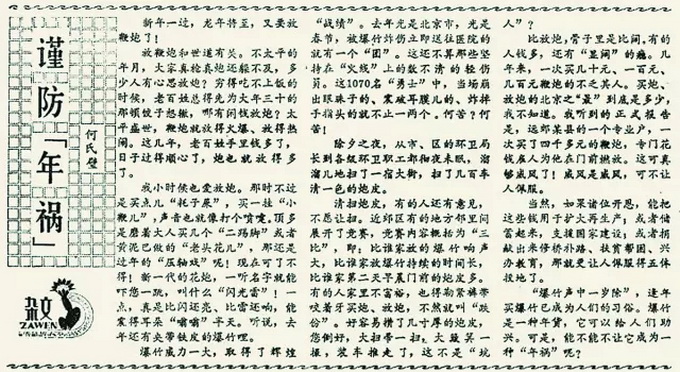 谨防「年祸」
何氏璧
杂文
ZAWEN
新年一过，龙年将至，又要放
鞭炮了！
放鞭炮和世道有关。不太平的
年月，大家真枪真炮还躲不及，多
少人有心思放炮？穷得吃不上饭的
时候，老百姓总得先为大年三十的
那顿饺子想辙，哪有闲钱放炮？太
平盛世，鞭炮就放得火爆、放得热
闹。这几年，老百姓手里钱多了，
日子过得顺心了，炮也就放得多
了。
我小时候也爱放炮。那时不过
是买点儿“耗子屎”，买一挂“小
鞭儿”，声音也就像打个喷嚏，顶多
是磨着大人买几个“二踢脚”或者
黄泥巴做的“老头花儿”，那还是
过年的“压轴戏”呢！现在可了不
得！新一代的花炮，一听名字就能
吓您一跳，叫什么“闪光雷”！一
点，真是比闪还亮、比雷还响，能
震得耳朵“嗡嗡”半天。听说，去
年还有夹带铁皮的爆竹哩。
爆竹威力一大，取得了辉煌
“战绩”。去年光是北京市，光是
春节，被爆竹炸伤立即送往医院的
就有一个“团”。这还不算那些坚
持在“火线”上的数不清的轻伤
员。这1070名“勇士”中，当场崩
出眼珠子的、震破耳膜儿的、炸掉
手指头的就不止一两个。何苦？何
苦！
除夕之夜，从市、区的环卫局
长到各级环卫职工都彻夜未眠，溜
溜儿地扫了一宿大街，扫了几百车
清一色的炮皮。
清扫炮皮，有的人还有意见，
不愿让扫。近郊区有的地方邻里间
展开了竞赛，竞赛内容概括为“三
比”，即：比谁家放的爆竹响声
大，比谁家放爆竹持续的时间长，
比谁家第二天早晨门前的炮皮多。
有的人家里不富裕，也得勒紧裤带
咬着牙买炮、放炮，不然就叫“跌
份”。好容易攒了几寸厚的炮皮，
您倒好，大扫帚一扫，大簸箕一
撮，装车推走了，这不是“坑
人”？
比放炮，骨子里是比阔。有的
人钱多，还有“显阔”的瘾。几
年来，一次买几十元、一百元、
几百元鞭炮的不乏其人。买炮、
放炮的北京之“最”到底是多少，
我不知道。我听到的正式报告
是，远郊某县的一个专业户，一
次买了四千多元的鞭炮，专门花
钱雇人为他在门前燃放。这可真
够威风了！威风是威风，可不让
人佩服。
当然，如果诸位开恩，能把
这些钱用于扩大再生产；或者储
蓄起来，支援国家建设；或者捐
献出来修桥补路、扶贫帮困、兴
办教育，那就更让人佩服得五体
投地了。
“爆竹声中一岁除”，逢年
买爆竹已成为人们的习俗。爆竹
是一种年货，它可以给人们助
兴。可是，能不能不让它成为一
种“年祸”呢？